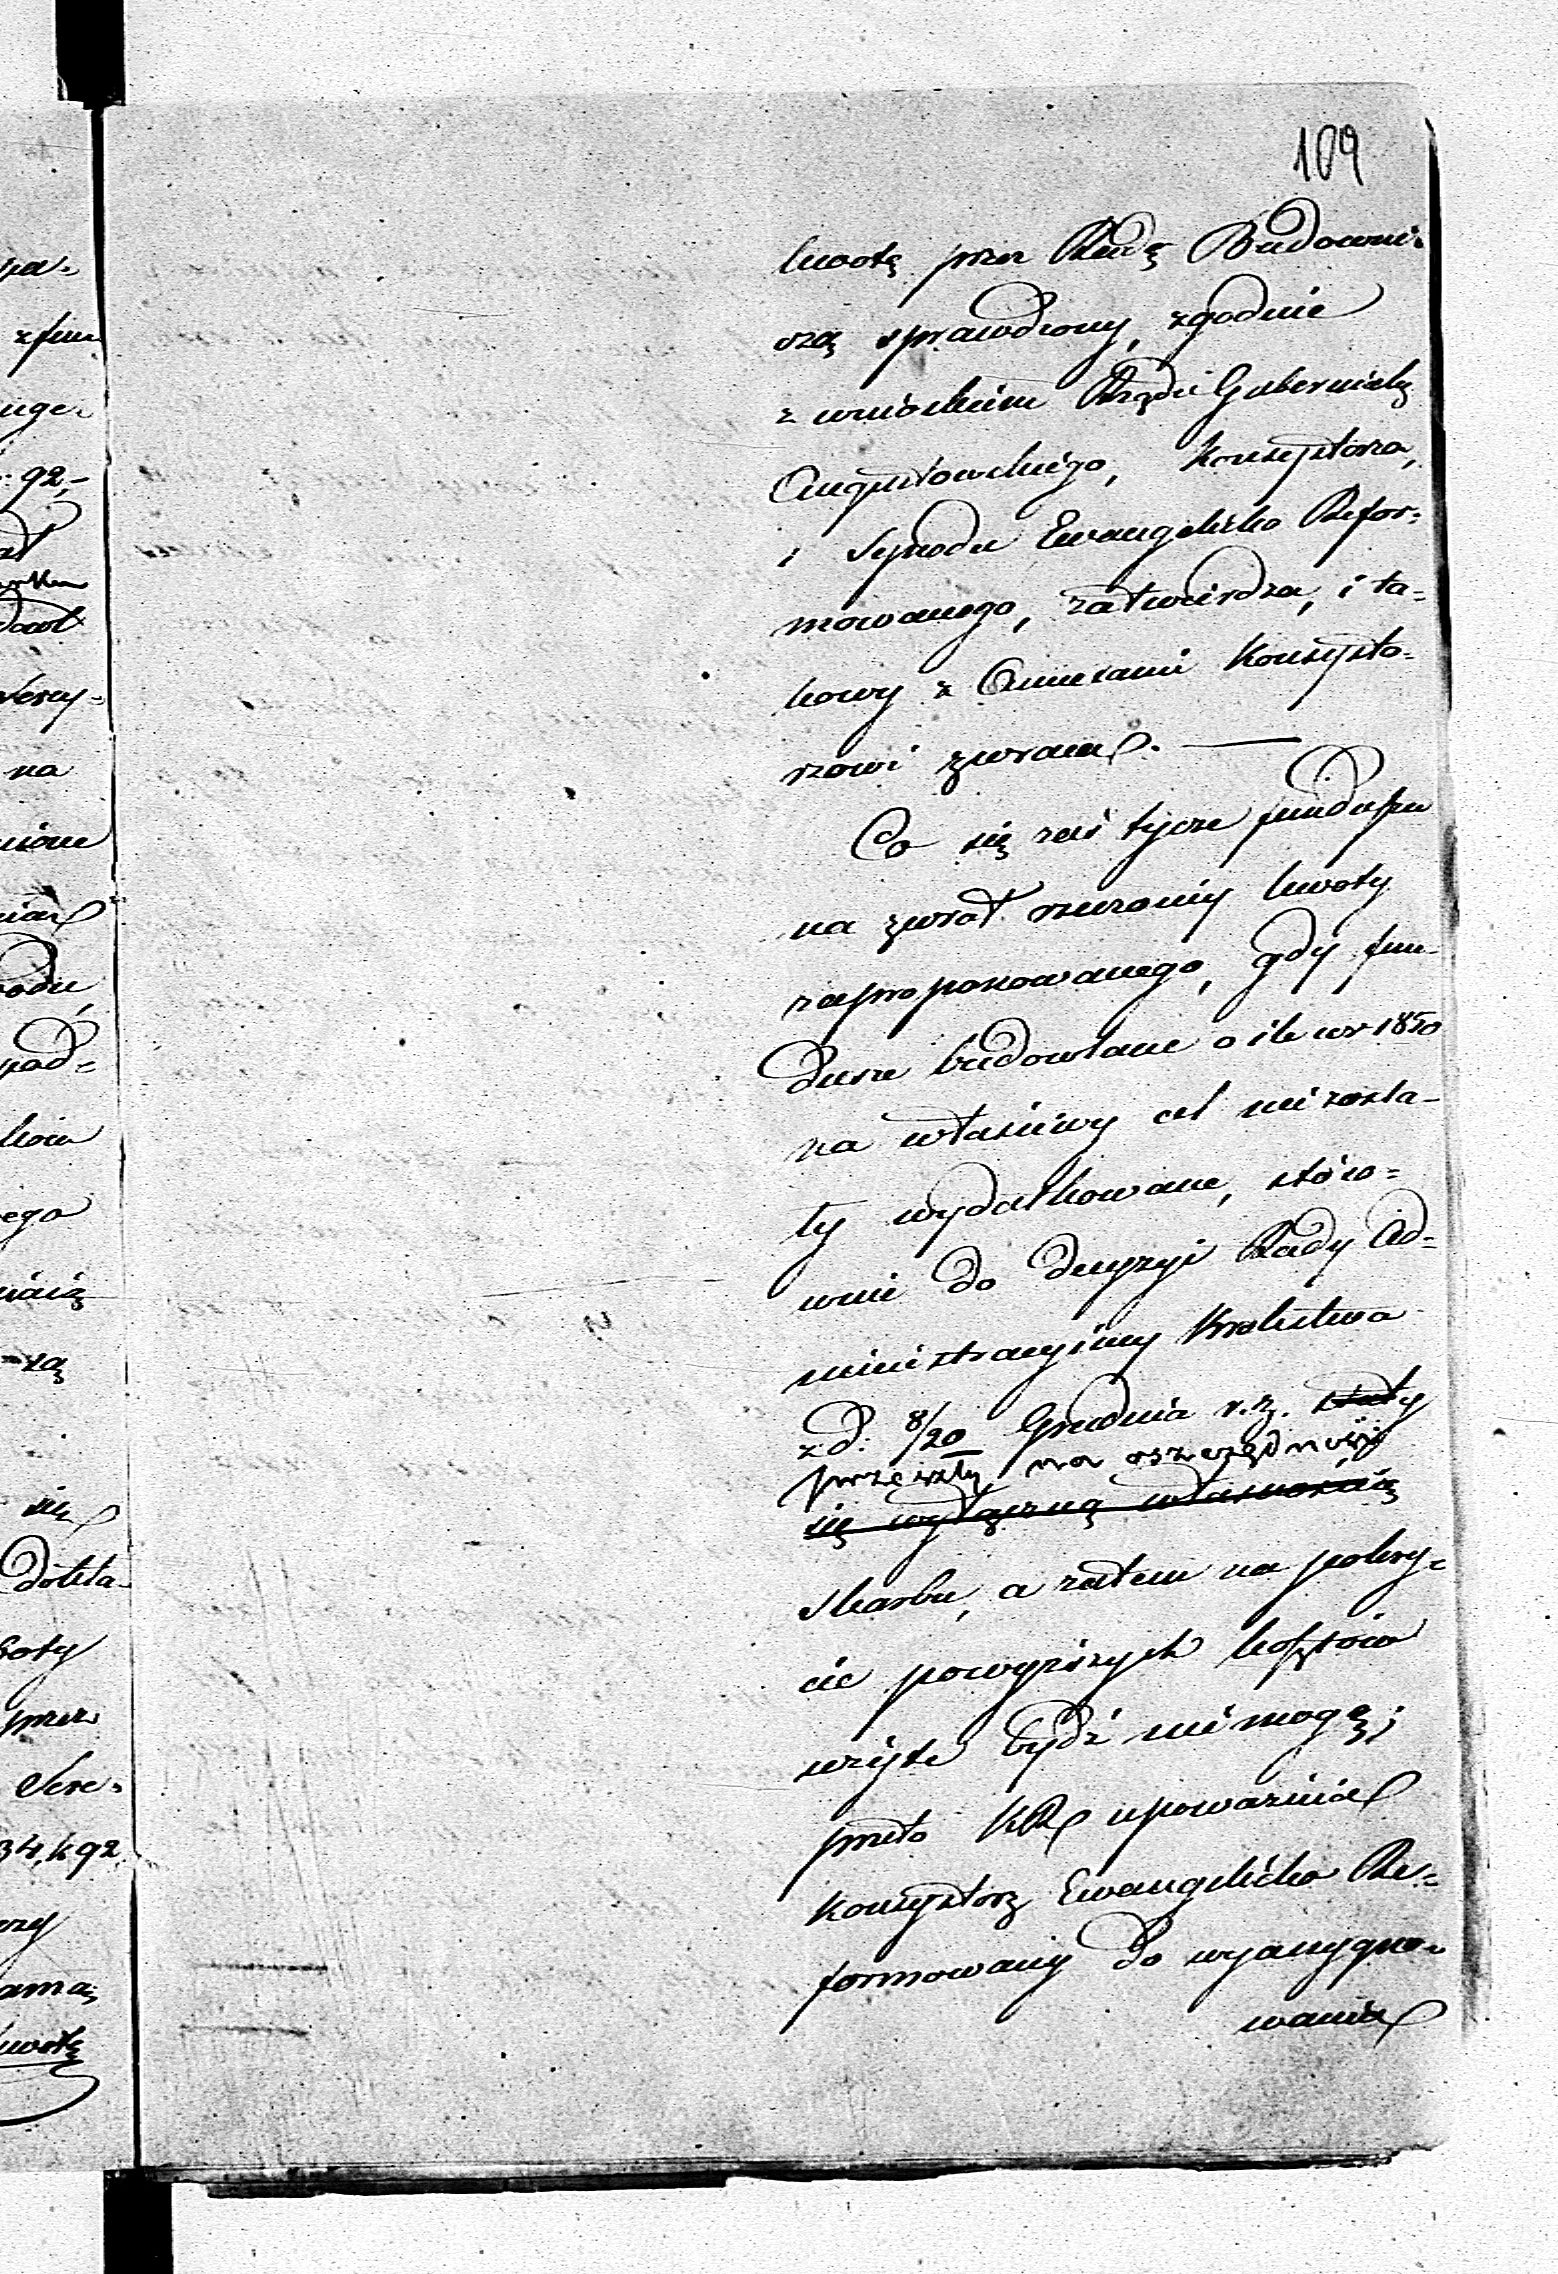 109
kwotę przez Radę Budowni-
czą sprawdzony, zgodnie
z wnioskiem Rządu Gubernialg
Augustowskiego, Konsystorza,
i Synodu Ewangelicko Refor-
mowanego, zatwierdza, i ta-
kowy z Annexami Konsysto-
rzowi zwraca. —
Co się zaś tycze funduszu
na zwrot rzeczoney kwoty
zaproponowanego, gdy fun-
dusze budowlane o ile w r 1850
na właściwy cel nie zosta-
ły wydatkowane, stóso-
wnie do decyzyi Rady Ad-
ministracyiney Królestwa
z d. 8/20 Grudnia r. z. stały
przeszły na oszczędność
się wyłączną własnością
Skarbu, a zatem na pokry-
cie powyższych kosztów
użyte bydź nie mogą;
przeto KR upoważnia
Konsystorz Ewangelicko Re-
formowany do wyassygno-
wania
pa-
z fun
92,-
na
rodu
pad-
ków
ego
się
przez
Sre-
34, k 92
kwotę